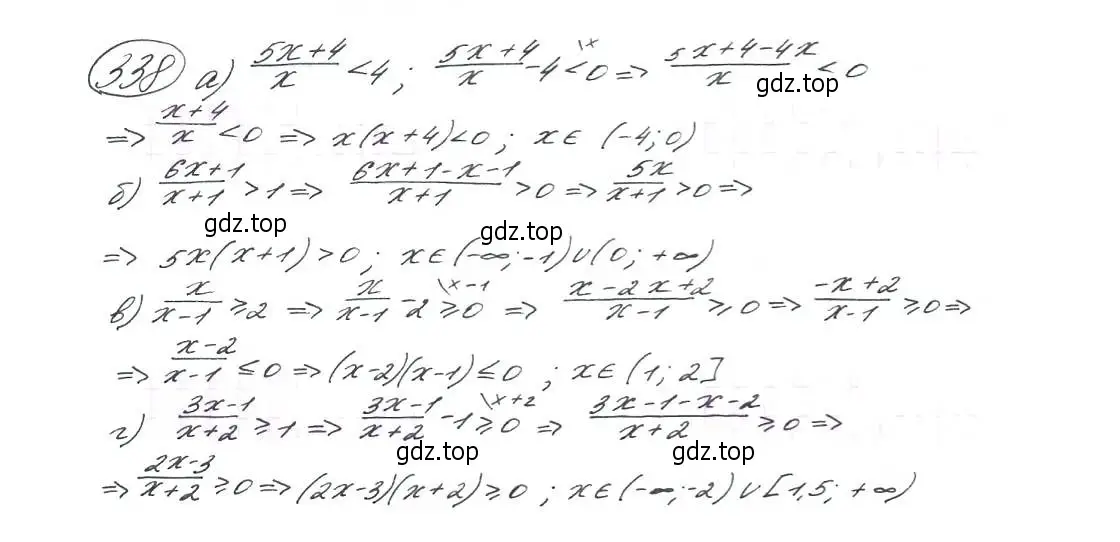 338 а) (5x+4)/x <4 ; (5x+4)/x -4 \x <0 => (5x+4-4x)/x <0
gdz.top
=> (x+4)/x <0 => x(x+4)<0 ; x∈ (-4; 0)
б) (6x+1)/(x+1) >1 => (6x+1-x-1)/(x+1) >0 => 5x/(x+1) >0 =>
gdz.top gdz.top
=> 5x(x+1)>0 ; x∈(-∞;-1)∪(0; +∞)
в) x/(x-1) ≥2 => x/(x-1) -2 \x-1 ≥0 => (x-2x+2)/(x-1) ≥0 => (-x+2)/(x-1) ≥0 =>
=> (x-2)/(x-1) ≤0 => (x-2)(x-1)≤0 ; x∈(1; 2]
г) (3x-1)/(x+2) ≥1 => (3x-1)/(x+2) -1 \x+2 ≥0 => (3x-1-x-2)/(x+2) ≥0 =>
gdz.top gdz.top
=> (2x-3)/(x+2) ≥0 => (2x-3)(x+2)≥0 ; x∈(-∞;-2)∪[1,5; +∞)